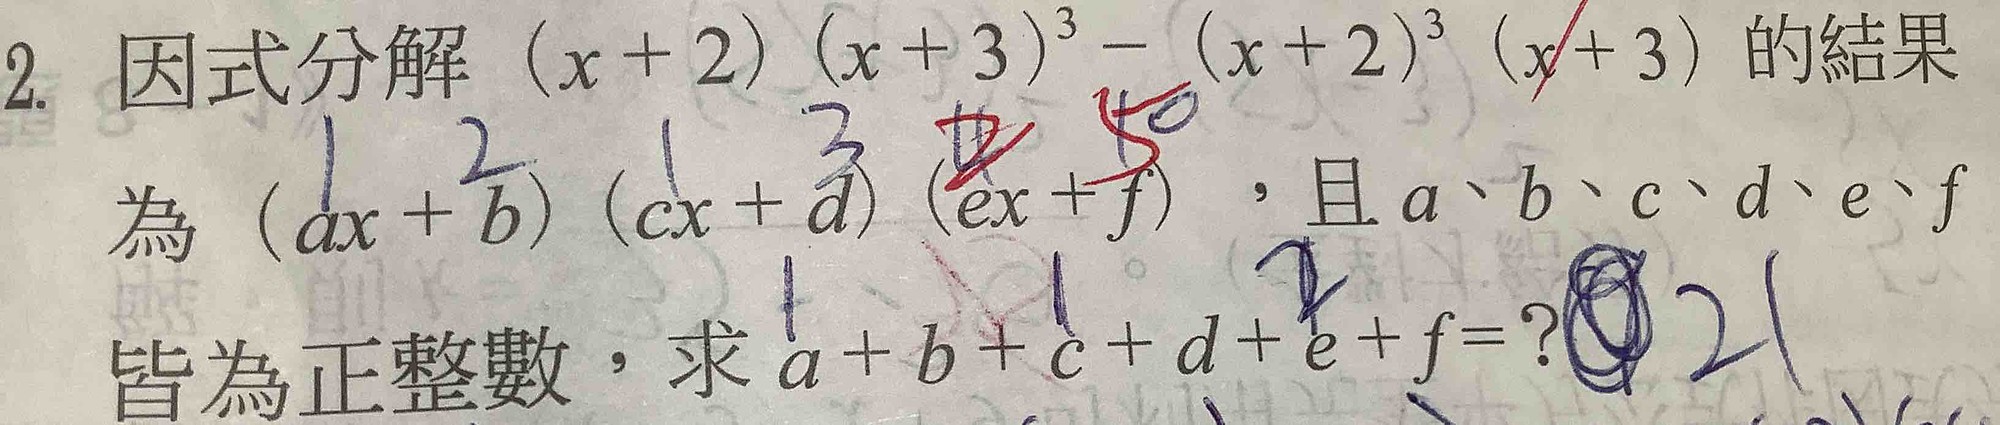 2. 因式分解 (x+2) (x+3)³－(x+2)³ (x+3) 的結果
1 2 1 3 2 5
為 (ax+b) (cx+d) (ex+f)，且 a、b、c、d、e、f
1 1 2
皆為正整數，求 a+b+c+d+e+f=? 21